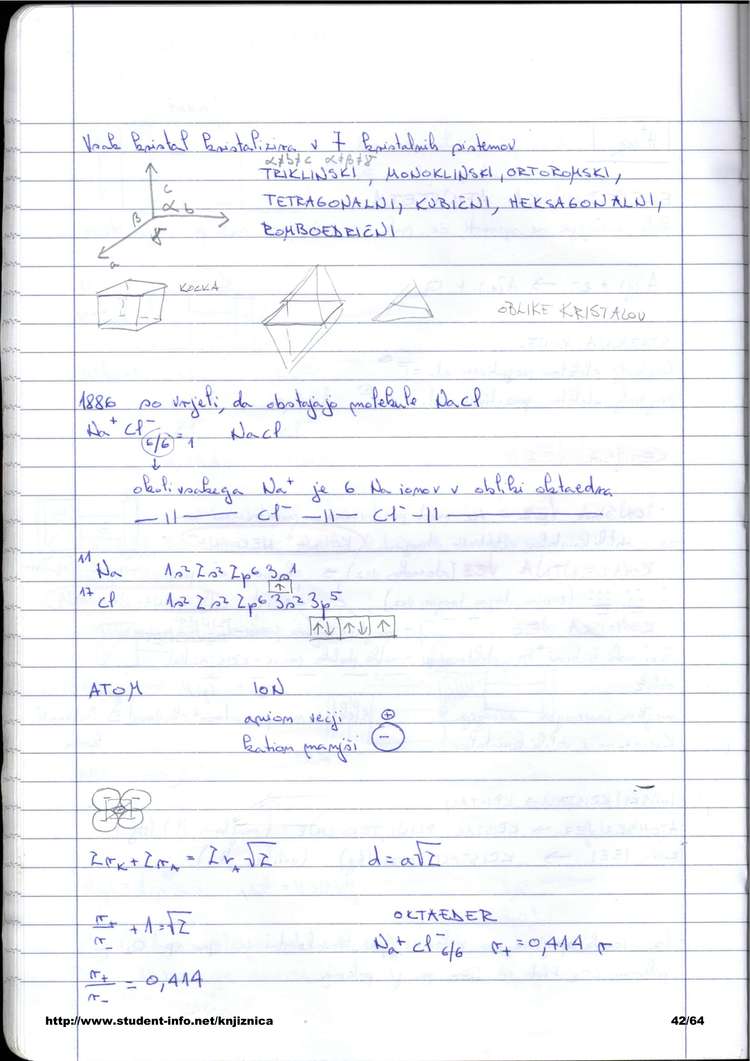 Vsak kristal kristalizira v 7 kristalnih sistemov
α≠b≠c α≠β≠γ
TRIKLINSKI, MONOKLINSKI, ORTOROMSKI,
c
α b
β
TETRAGONALNI, KUBIČNI, HEKSAGONALNI,
γ
ROMBOEDRIČNI
a
KOCKA
OBLIKE KRISTALOV
1886 so vrjeli, da obstajajo molekule NaCl
Na⁺ Cl⁻ 6/6 = 1 NaCl
okoli vsakega Na⁺ je 6 Na ionov v obliki oktaedra
— 11 —— Cl⁻ — 11 — Cl⁻ — 11 ——
¹¹Na 1s² 2s² 2p⁶ 3s¹
↑
¹⁷Cl 1s² 2s² 2p⁶ 3s² 3p⁵
↑↓ ↑↓ ↑
ATOM ION
anion večji ⊕
kation manjši −
2r_K + 2r_A = 2r_A √2 d = a√2
r₊/r₋ + 1 = √2
OKTAEDER
Na⁺ Cl⁻ 6/6 r₊ = 0,414 r
r₊/r₋ = 0,414
http://www.student-info.net/knjiznica 42/64